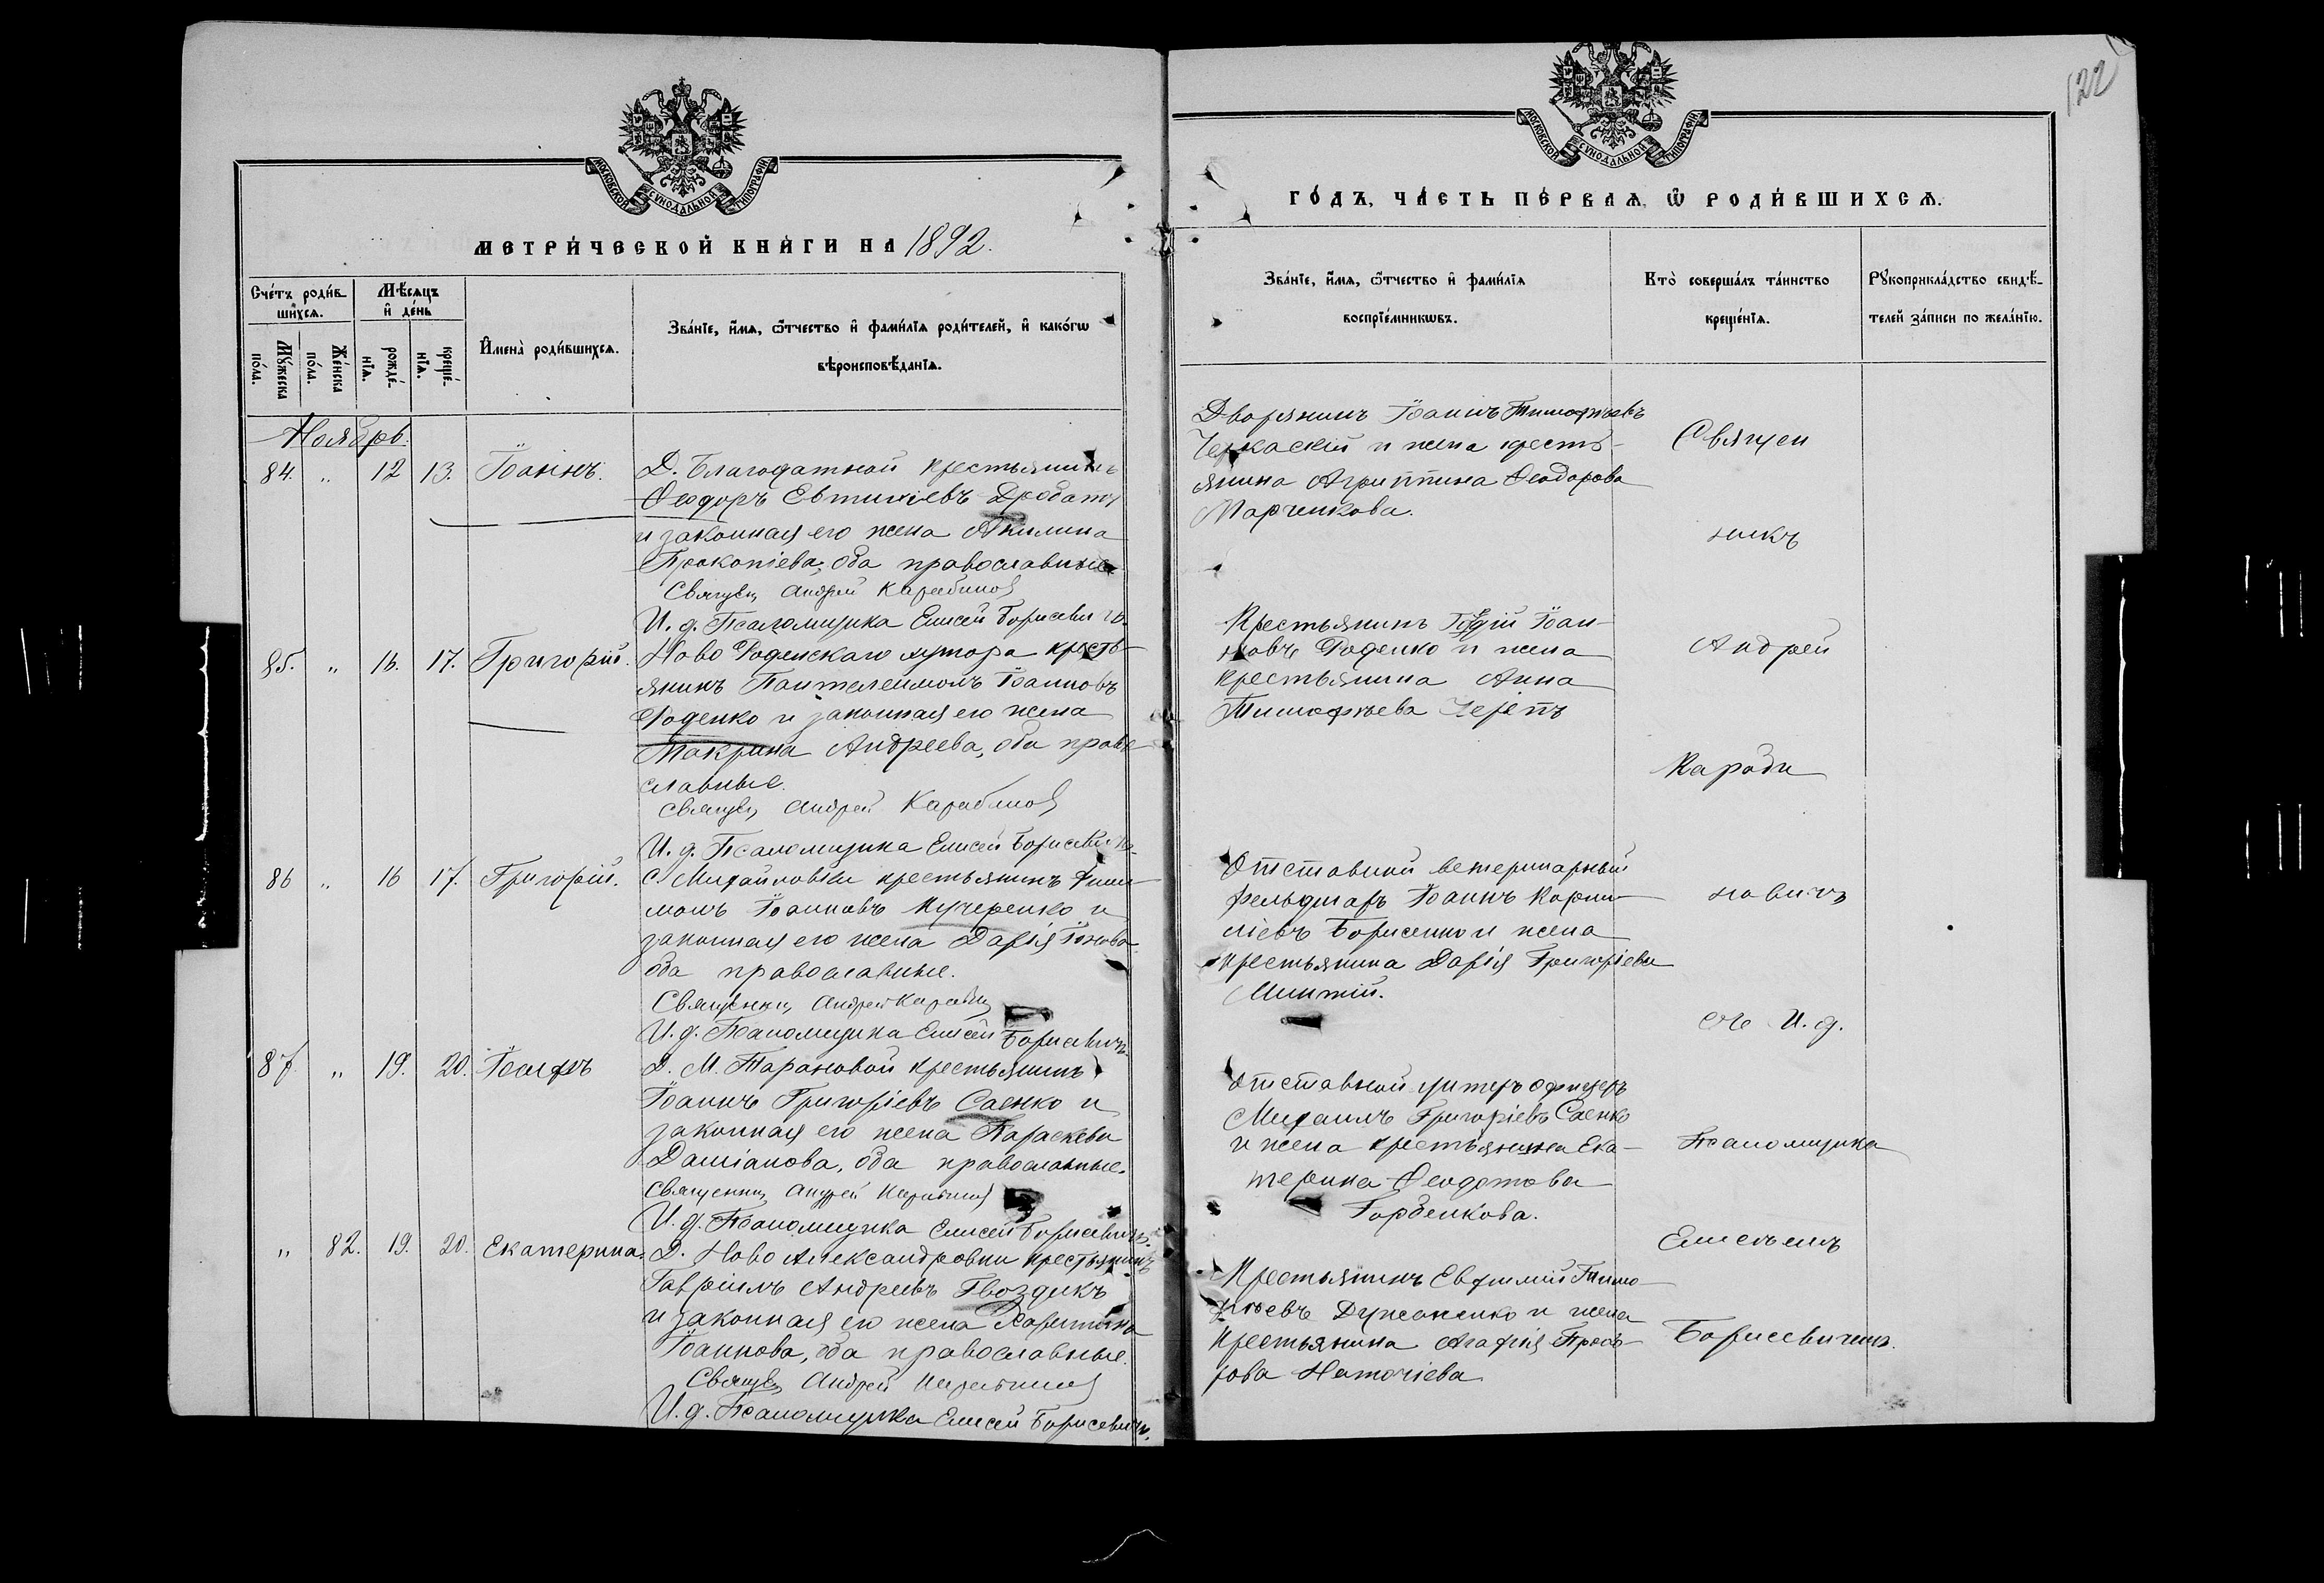 МОСКОВСКОЙ СѴНОДАЛЬНОЙ ТИПОГРАФІИ
МЕТРИ́ЧЕСКОЙ КНИ́ГИ НА 1892.
Сче́тъ роди́вшихсѧ.
Мѣ́сѧцъ и҆ де́нь
И҆мена̀ роди́вшихсѧ.
Зва́нїе, и҆́мѧ, ѻ҆́тчество и҆ фами́лїѧ роди́телей, и҆ како́гѡ
вѣроисповѣ́данїѧ.
Мꙋ́жеска по́ла.
Же́нска по́ла.
рожде́нїѧ.
креще́нїѧ.
Ноябрь.
84. " 12 13. Іоаннъ.
Д. Благодатной крестьянинъ
Ѳеодоръ Евтихіевъ
и законная его жена Акилина
Прокопіева, оба православные
Священ Андрей Карабинов
И. д. Псаломщика Елисей Борисевичъ.
85. " 16. 17. Григорій.
Ново Роденскаго хутора кресть-
янинъ Пантелеимонъ Іоанновъ
Роденко и законная его жена
Макрина Андреева, оба право-
славные.
Священ Андрей Карабинов
И. д. Псаломщика Елисей Борисевичъ.
86 " 16 17. Григорій.
с. Михайловки крестьянинъ Фили-
монъ Іоанновъ Кучеренко и
законная его жена Дарія
оба православные.
Священник Андрей Карабин
И. д. Псаломщика Елисей Борисевичъ.
87. " 19. 20. Іосифъ
Д. М. Тарановой крестьянинъ
Іоаннъ Григоріевъ Саенко и
законная его жена Параскева
Даміанова, оба православные.
Священник Андрей Карабинов
И. д. Псаломщика Елисей Борисевичъ.
" 82. 19. 20. Екатерина.
Д. Ново Александровки крестьянинъ
Гавріилъ Андреевъ Гвоздикъ
и законная его жена Харитина
Іоаннова, оба православные.
Священ Андрей Карабинов
И. д. Псаломщика Елисей Борисевичъ.
122
МОСКОВСКОЙ СѴНОДАЛЬНОЙ ТИПОГРАФІИ
ГО́ДЪ, ЧА́СТЬ ПЕ́РВАѦ, Ѡ҆ РОДИ́ВШИХСѦ.
Зва́нїе, и҆́мѧ, ѻ҆́тчество и҆ фами́лїѧ
воспрїе́мникѡвъ.
Кто̀ соверша́лъ та́инство
креще́нїѧ.
Рꙋкоприкла́дство свидѣ́-
телей за́писи по жела́нїю.
Дворянинъ Іоаннъ Тимофеевъ
Черкаскій и жена кресть-
янина Агриппина Ѳеодорова
Марченкова.
Крестьянинъ Іоан-
новъ Роденко и жена
крестьянина Анна
Тимофѣева Черепъ
Отставной ветеринарный
фельдшаръ Іоаннъ Корни-
ліевъ Борисенко и жена
крестьянина Дарія Григоріева
Отставной унтеръ офицеръ
Михаилъ Григоріевъ Саенко
и жена крестьянина Ека-
терина Ѳеодотова
Горбенкова.
Крестьянинъ Евфимій Тимо-
фѣевъ и жена
крестьянина Агафія
Священ
никъ
Андрей
Караби
новичъ
съ И. д.
Псаломщика
Елисѣемъ
Борисевичемъ.